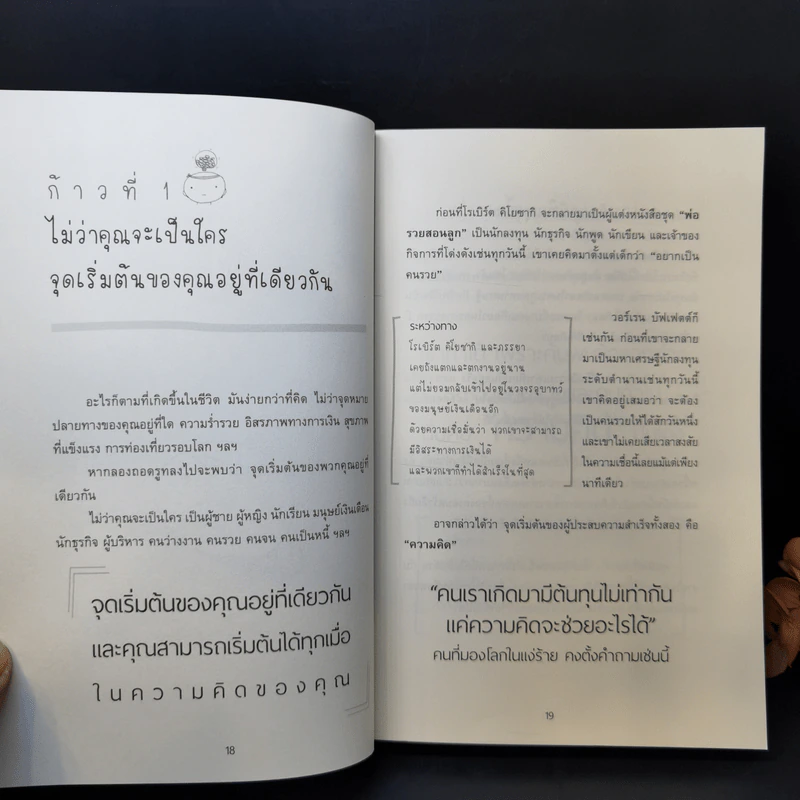 ก้าวที่ 1
ไม่ว่าคุณจะเป็นใคร
จุดเริ่มต้นของคุณอยู่ที่เดียวกัน
อะไรก็ตามที่เกิดขึ้นในชีวิต มันง่ายกว่าที่คิด ไม่ว่าจุดหมาย
ปลายทางของคุณอยู่ที่ใด ความร่ำรวย อิสรภาพทางการเงิน สุขภาพ
ที่แข็งแรง การท่องเที่ยวรอบโลก ฯลฯ
หากลองถอดรูทลงไปจะพบว่า จุดเริ่มต้นของพวกคุณอยู่ที่
เดียวกัน
ไม่ว่าคุณจะเป็นใคร เป็นผู้ชาย ผู้หญิง นักเรียน มนุษย์เงินเดือน
นักธุรกิจ ผู้บริหาร คนว่างงาน คนรวย คนจน คนเป็นหนี้ ฯลฯ
จุดเริ่มต้นของคุณอยู่ที่เดียวกัน
และคุณสามารถเริ่มต้นได้ทุกเมื่อ
ในความคิดของคุณ
18
ก่อนที่โรเบิร์ต คิโยซากิ จะกลายมาเป็นผู้แต่งหนังสือชุด “พ่อ
รวยสอนลูก” เป็นนักลงทุน นักธุรกิจ นักพูด นักเขียน และเจ้าของ
กิจการที่โด่งดังเช่นทุกวันนี้ เขาเคยคิดมาตั้งแต่เด็กว่า “อยากเป็น
คนรวย”
ระหว่างทาง
โรเบิร์ต คิโยซากิ และภรรยา
เคยถังแตกและตกงานอยู่นาน
แต่ไม่ยอมกลับเข้าไปอยู่ในวงจรอุบาทว์
ของมนุษย์เงินเดือนอีก
ด้วยความเชื่อมั่นว่า พวกเขาจะสามารถ
มีอิสระทางการเงินได้
และพวกเขาก็ทำได้สำเร็จในที่สุด
วอร์เรน บัฟเฟตต์ก็
เช่นกัน ก่อนที่เขาจะกลาย
มาเป็นมหาเศรษฐีนักลงทุน
ระดับตำนานเช่นทุกวันนี้
เขาคิดอยู่เสมอว่า จะต้อง
เป็นคนรวยให้ได้สักวันหนึ่ง
และเขาไม่เคยเสียเวลาสงสัย
ในความเชื่อนี้เลยแม้แต่เพียง
นาทีเดียว
อาจกล่าวได้ว่า จุดเริ่มต้นของผู้ประสบความสำเร็จทั้งสอง คือ
“ความคิด”
“คนเราเกิดมามีต้นทุนไม่เท่ากัน
แค่ความคิดจะช่วยอะไรได้”
คนที่มองโลกในแง่ร้าย คงตั้งคำถามเช่นนี้
19